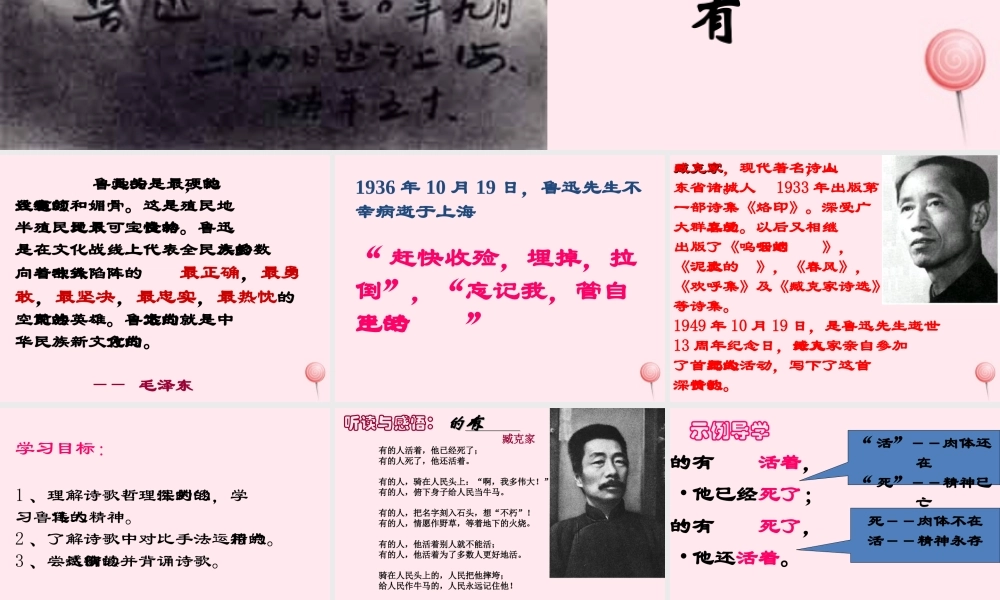 鲁迅 一九三〇年九月
二十四日照于上海、
时年五十、
有
鲁迅的是最硬的
和媚骨。这是殖民地
半殖民最可宝。鲁迅
是在文化战线上代表全民数
向着陷阵的 最正确，最勇
敢，最坚决，最忠实，最热忱的
空英雄。鲁就是中
华民族新文。
－－ 毛泽东
1936 年 10 月 19 日，鲁迅先生不
幸病逝于上海
“ 赶快收殓，埋掉，拉
倒”，“忘记我，管自
”
臧克家，现代著名诗山
东省诸城人 1933 年出版第
一部诗集《烙印》。深受广
大群。以后又相继
出版了《呜 》，
《泥 》，《春风》，
《欢呼集》及《臧克家诗选》
等诗集。
1949 年 10 月 19 日，是鲁迅先生逝世
13 周年纪念日，克家亲自参加
了首活动，写下了这首
深。
学习目标：
1 、理解诗歌哲理，学
习鲁精神。
2 、了解诗歌中对比手法运。
3 、尝并背诵诗歌。
听读与感悟： 的有
臧克家
有的人活着，他已经死了；
有的人死了，他还活着。
有的人，骑在人民头上：“啊，我多伟大！”
有的人，俯下身子给人民当牛马。
有的人，把名字刻入石头，想“不朽”！
有的人，情愿作野草，等着地下的火烧。
有的人，他活着别人就不能活；
有的人，他活着为了多数人更好地活。
骑在人民头上的，人民把他摔垮；
给人民作牛马的，人民永远记住他！
示例导学
的有 活着，
•他已经死了；
的有 死了，
•他还活着。
“ 活”－－肉体还
在
“ 死”－－精神已
亡
死－－肉体不在
活－－精神永存